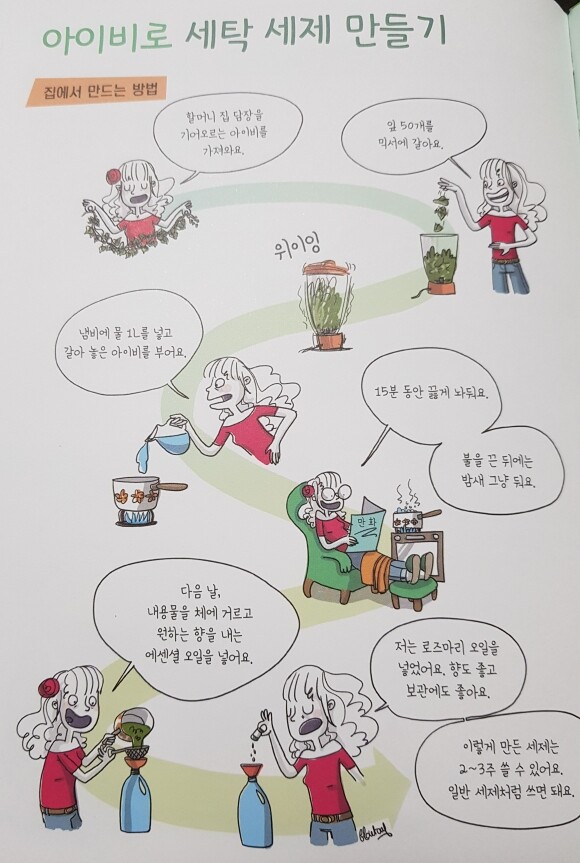 아이비로 세탁 세제 만들기
집에서 만드는 방법
할머니 집 담장을
기어오르는 아이비를
가져와요.
잎 50개를
믹서에 갈아요.
위이잉
냄비에 물 1L를 넣고
갈아 놓은 아이비를 부어요.
15분 동안 끓게 놔둬요.
불을 끈 뒤에는
밤새 그냥 둬요.
만화
다음 날,
내용물을 체에 거르고
원하는 향을 내는
에센셜 오일을 넣어요.
저는 로즈마리 오일을
넣었어요. 향도 좋고
보관에도 좋아요.
이렇게 만든 세제는
2~3주 쓸 수 있어요.
일반 세제처럼 쓰면 돼요.